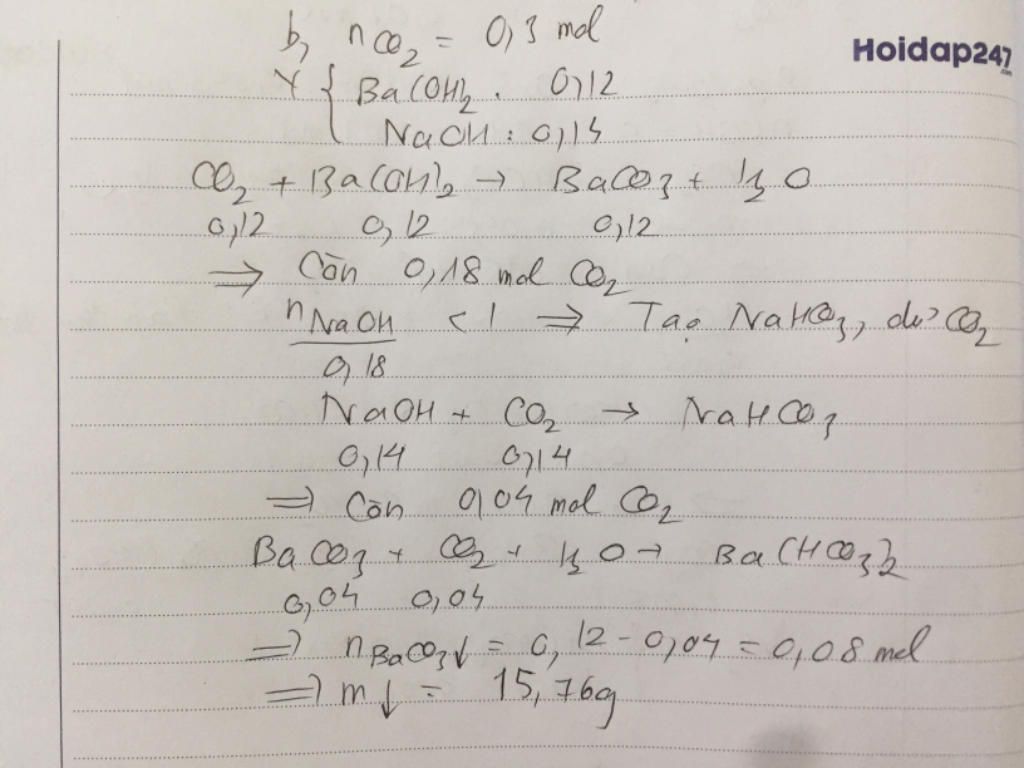 b, nCO₂ = 0,3 mol
Hoidap247
.com
Y { Ba(OH)₂ : 0,12
NaOH : 0,14
CO₂ + Ba(OH)₂ → BaCO₃ + H₂O
0,12 0,12 0,12
⇒ Còn 0,18 mol CO₂
nNaOH < 1 ⇒ Tạo NaHCO₃, dư CO₂
0,18
NaOH + CO₂ → NaHCO₃
0,14 0,14
⇒ Còn 0,04 mol CO₂
BaCO₃ + CO₂ + H₂O → Ba(HCO₃)₂
0,04 0,04
⇒ nBaCO₃↓ = 0,12 - 0,04 = 0,08 mol
⇒ m↓ = 15,76g